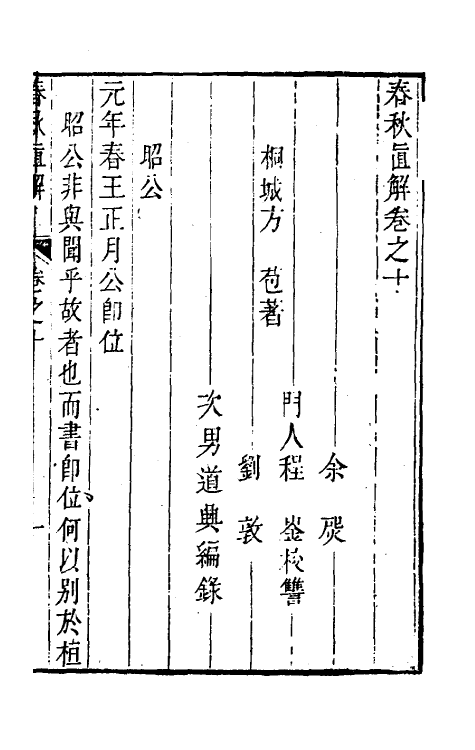 春秋直解卷之十
桐城方　苞著
余　熂
門人程　崟校讐
劉　敦
次男道興編錄
昭公
元年春王正月公卽位
昭公非與聞乎故者也而書卽位何以別於桓
春秋直解　卷之十　一